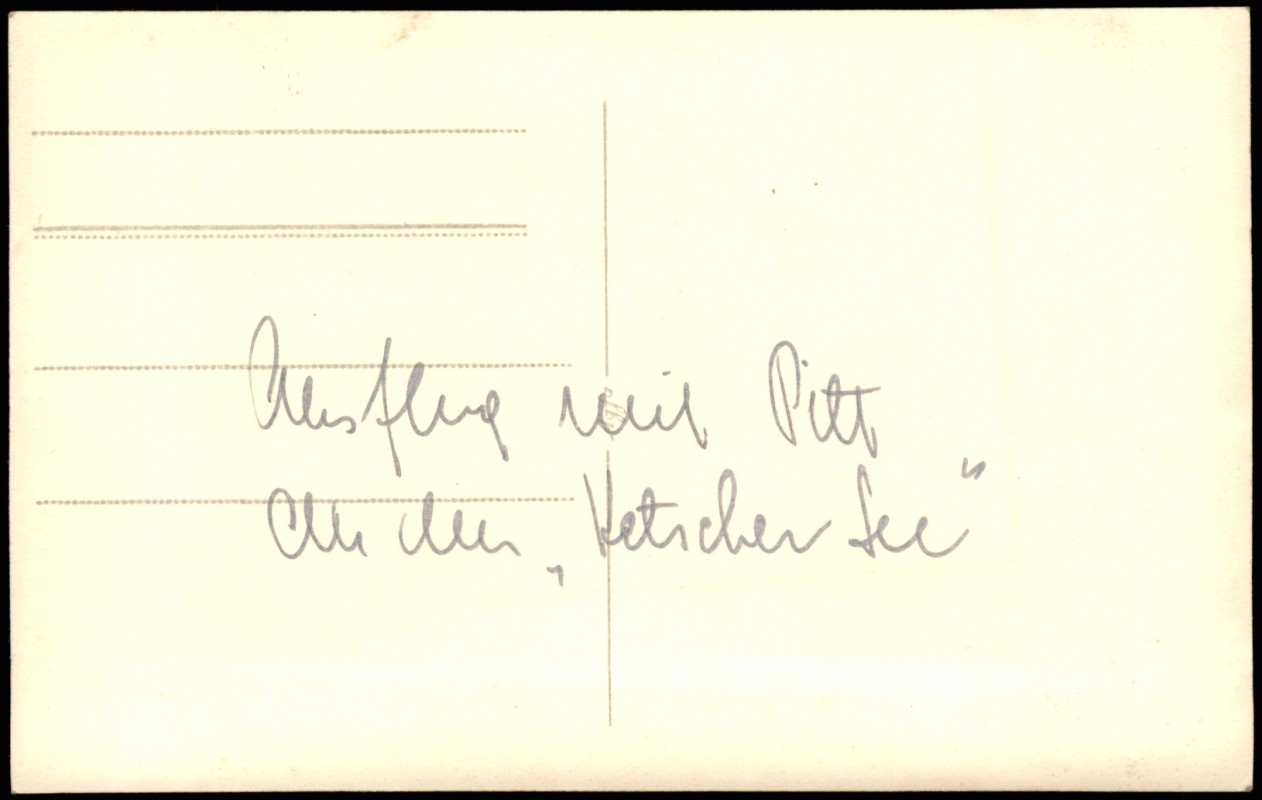 Ausflug mit Pitt
an den „Ketscher See“